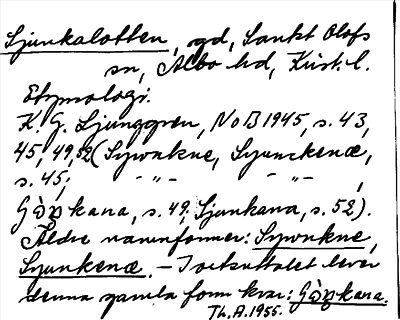 Sjunkalotten, gd, Sankt Olofs
sn, Albo hd, Krist. l.
Etymologi.
K. G. Ljunggren, NoB 1945, s. 43,
45, 49, 52 (Sywnkne, Syunckenæ,
s. 45, -"- -"-,
kana, s. 49, Sjunkana, s. 52).
Äldre namnformer: Sywnkne,
Syunkenæ. – I ortsuttalet lever
denna gamla form kvar:
Th. A. 1955.